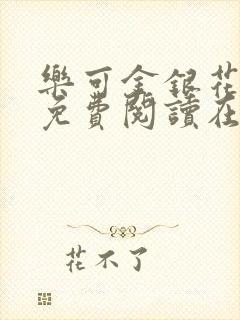 樂可金銀花
免費閱讀在
花不了